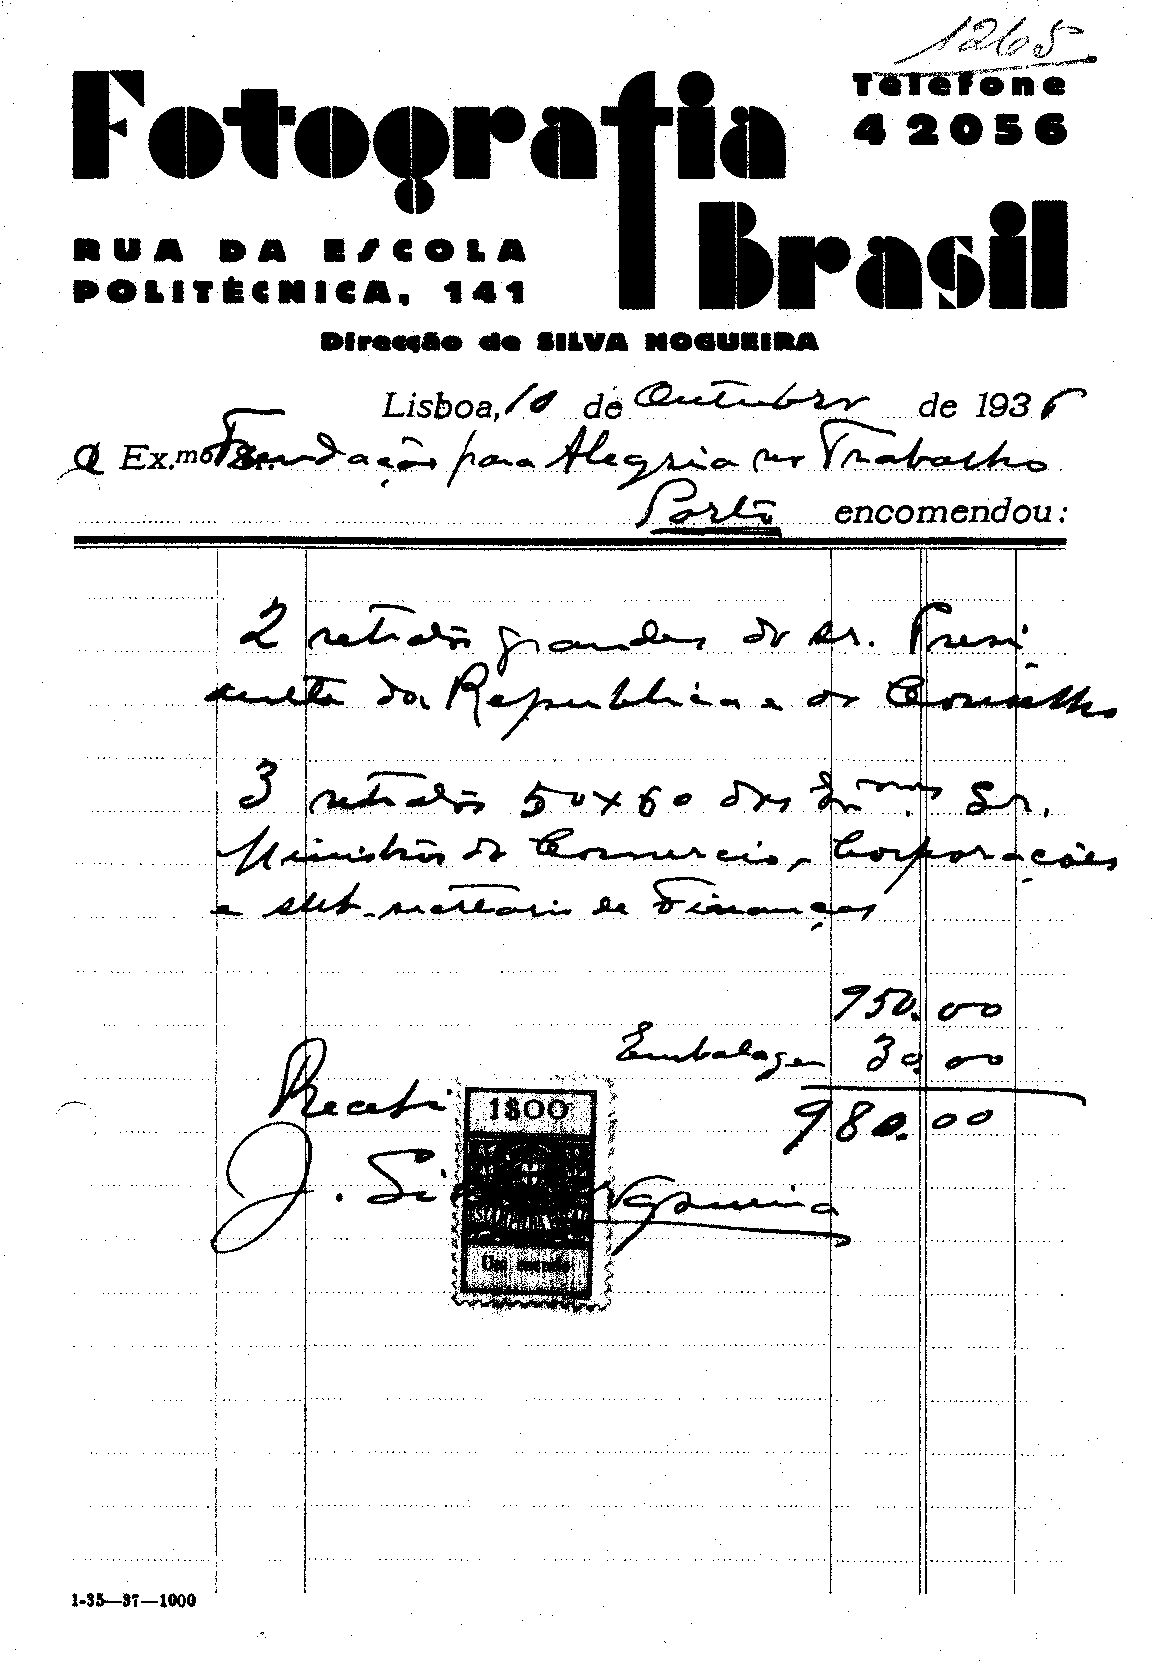 1265
Fotografia
Brasil
Telefone
42056
RUA DA ESCOLA
POLITÉCNICA, 141
Direcção de SILVA NOGUEIRA
Lisboa, 10 de Outubro de 1936
A Ex.mo Sr. Fundação para Alegria no Trabalho
Porto encomendou:
2 retratos grandes do sr. Presi
dente da Republica e do Conselho
3 retratos 50x60 dos Sr.
Ministros do Comercio, Corporações
e sub-secretario de Finanças
950.00
Embalagem 30.00
980.00
Recebi
1$00
J. Silva Nogueira
Um escudo
1-35—37—1000